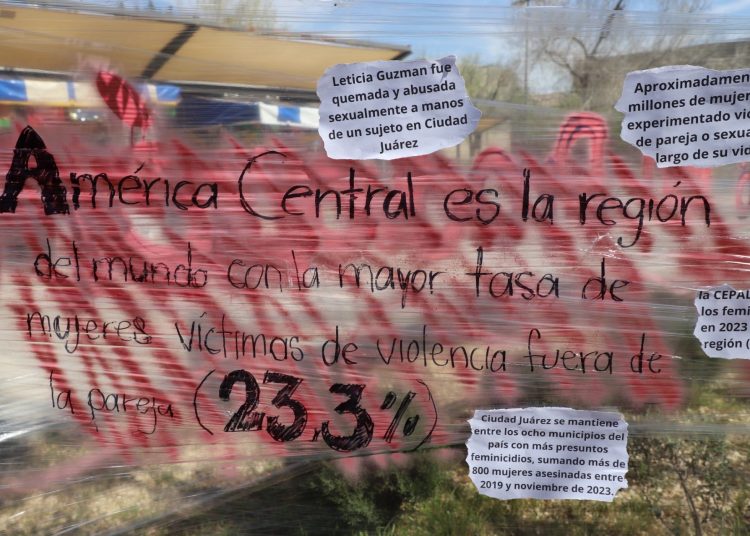 Leticia Guzman fue
quemada y abusada
sexualmente a manos
de un sujeto en Ciudad
Juárez
millones de
experimentado
de pareja o
largo de su
América Central es la región
del mundo con la mayor tasa de
mujeres víctimas de violencia fuera de
la pareja (23.3%)
la CEPAL
los
en 2023
región (
Ciudad Juárez se mantiene
entre los ocho municipios del
país con más presuntos
feminicidios, sumando más de
800 mujeres asesinadas entre
2019 y noviembre de 2023.